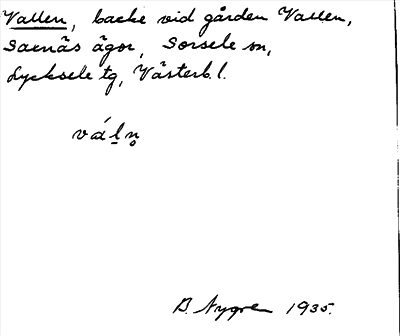 Vallen, backe vid gården Vallen,
Saxnäs ägor, Sorsele sn,
Lycksele tg, Västerb. l.
vál̲n̥
B. Nygren 1935.